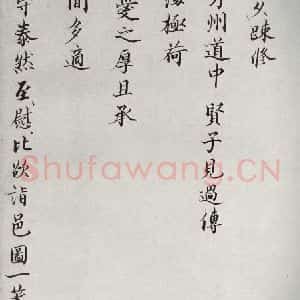 踈脩
州道中 賢子見過傳
極荷
愛之厚且承
間多適
泰然至慰比欲詣邑圖一
Shufawang.CN